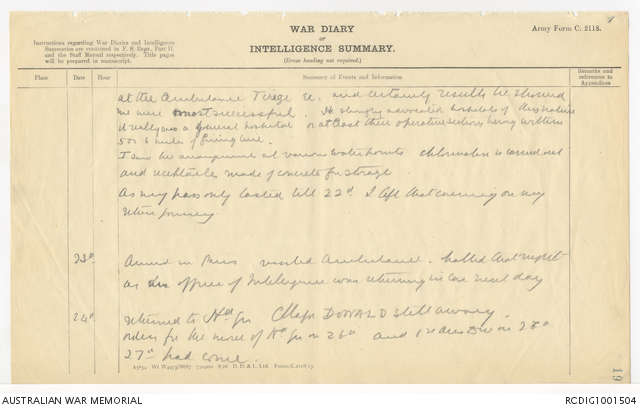 WAR DIARY
or
INTELLIGENCE SUMMARY.
(Erase heading not required.)
Army Form C. 2118.
Instructions regarding War Diaries and Intelligence
Summaries are contained in F. S. Regs., Part II.
and the Staff Manual respectively. Title pages
will be prepared in manuscript.
Place
Date
Hour
Summary of Events and Information
Remarks and
references to
Appendices
at the Ambulance Triage &c. and certainly results he showed
me were most successful. He strongly advocated hospitals of this nature
really a General hospital or at least their operative sections being within
5 or 6 miles of firing line.
I saw the arrangements at various water points chlorination is carried out
and receptacles made of concrete for storage
As my pass only lasted till 22d I left that evening on my
return journey
23d
Arrived in Paris visited Ambulance. halted that night
as officer of Intelligence was returning in car next day
24th
returned to Hd Qrs Major DONALD still away.
orders for the move of Hd Qrs on 26th and on 28th
27th had come.
19
AUSTRALIAN WAR MEMORIAL
RCDIG1001504